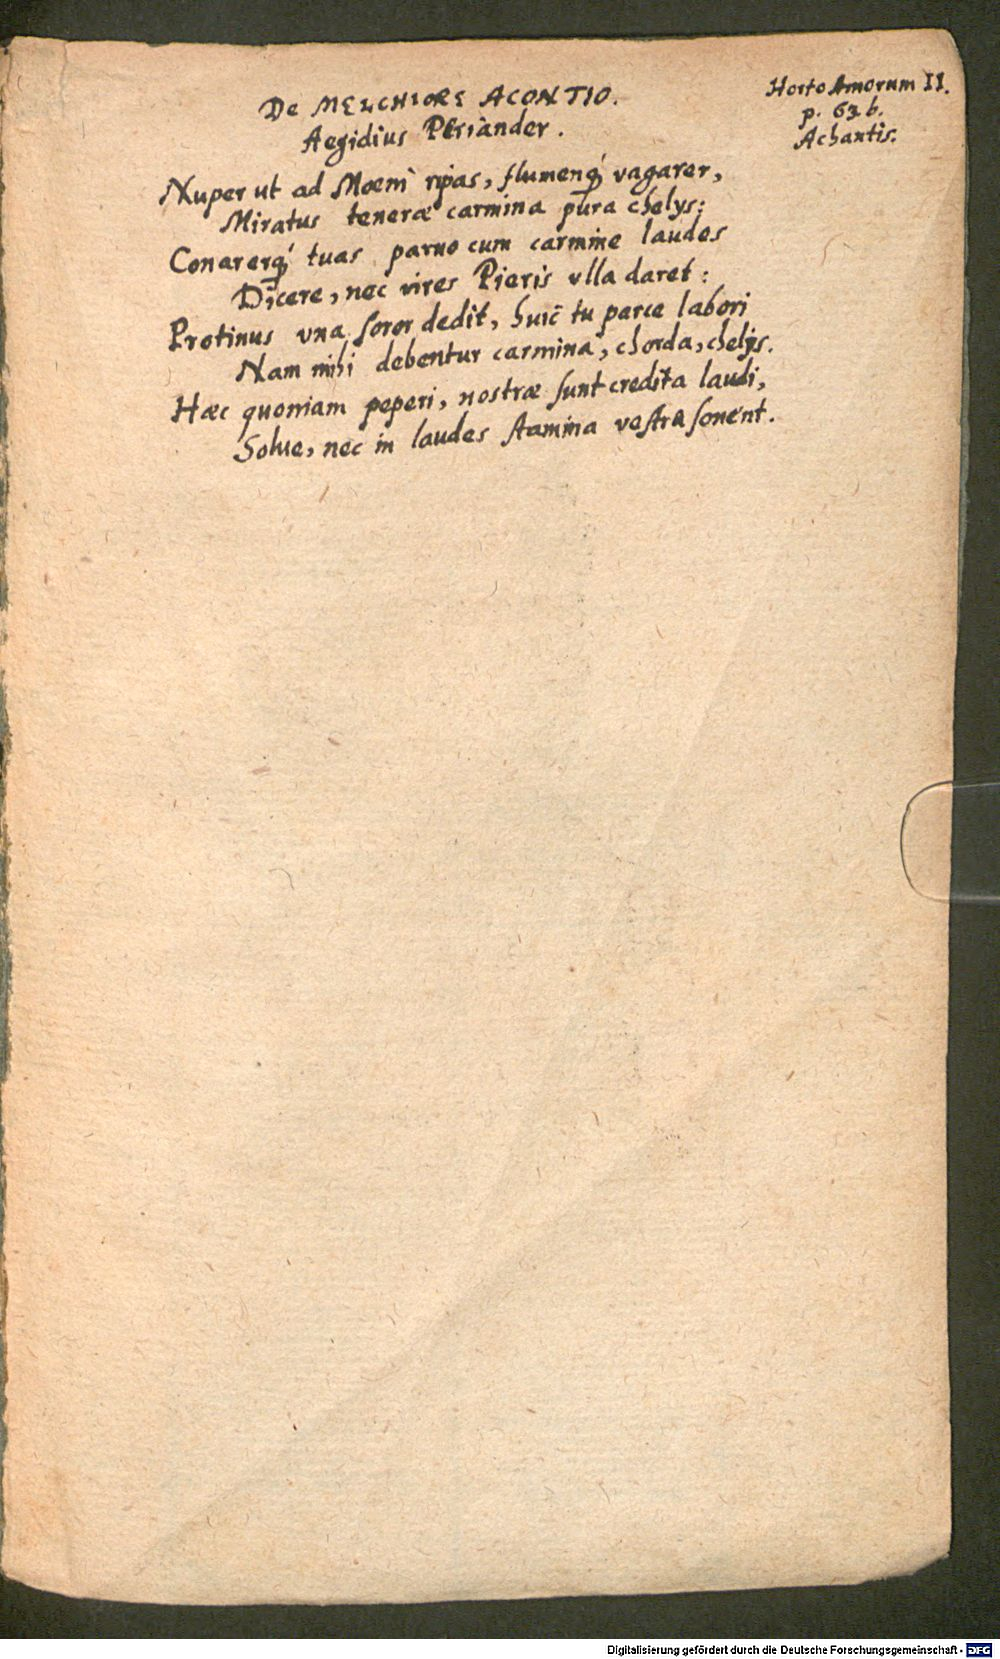 De MELCHIORE ACONTIO.
Aegidius Periander.
Horto Amorum II.
p. 63 b.
Achantis.
Nuper ut ad Moeni ripas, flumenq́ vagarer,
Miratus teneræ carmina pura chelys:
Conarerq́ tuas paruo cum carmine laudes
Dicere, nec vires Pieris vlla daret:
Protinus vna soror dedit, huic tu parce labori
Nam mihi debentur carmina, chorda, chelys.
Hæc quoniam peperi, nostræ sunt credita laudi,
Solue, nec in laudes stamina vestra sonent.
Digitalisierung gefördert durch die Deutsche Forschungsgemeinschaft - DFG